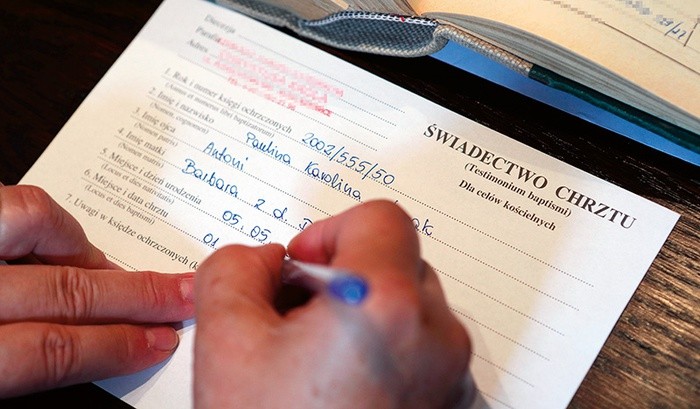 ŚWIADECTWO CHRZTU
(Testimonium baptismi)
Dla celów kościelnych
Diecezja
Parafia
Adres
1. Rok i numer księgi ochrzczonych 2002/555/50
(Annus et numerus libri baptizatorum)
2. Imię i nazwisko Paulina Karolina
(Nomen, cognomen)
3. Imię ojca Antoni
(Nomen patris)
4. Imię matki Barbara z d.
(Nomen matris)
5. Miejsce i dzień urodzenia 05.05
(Locus et dies nativitatis)
6. Miejsce i data chrztu 01
(Locus et dies baptismi)
7. Uwagi w księdze ochrzczonych